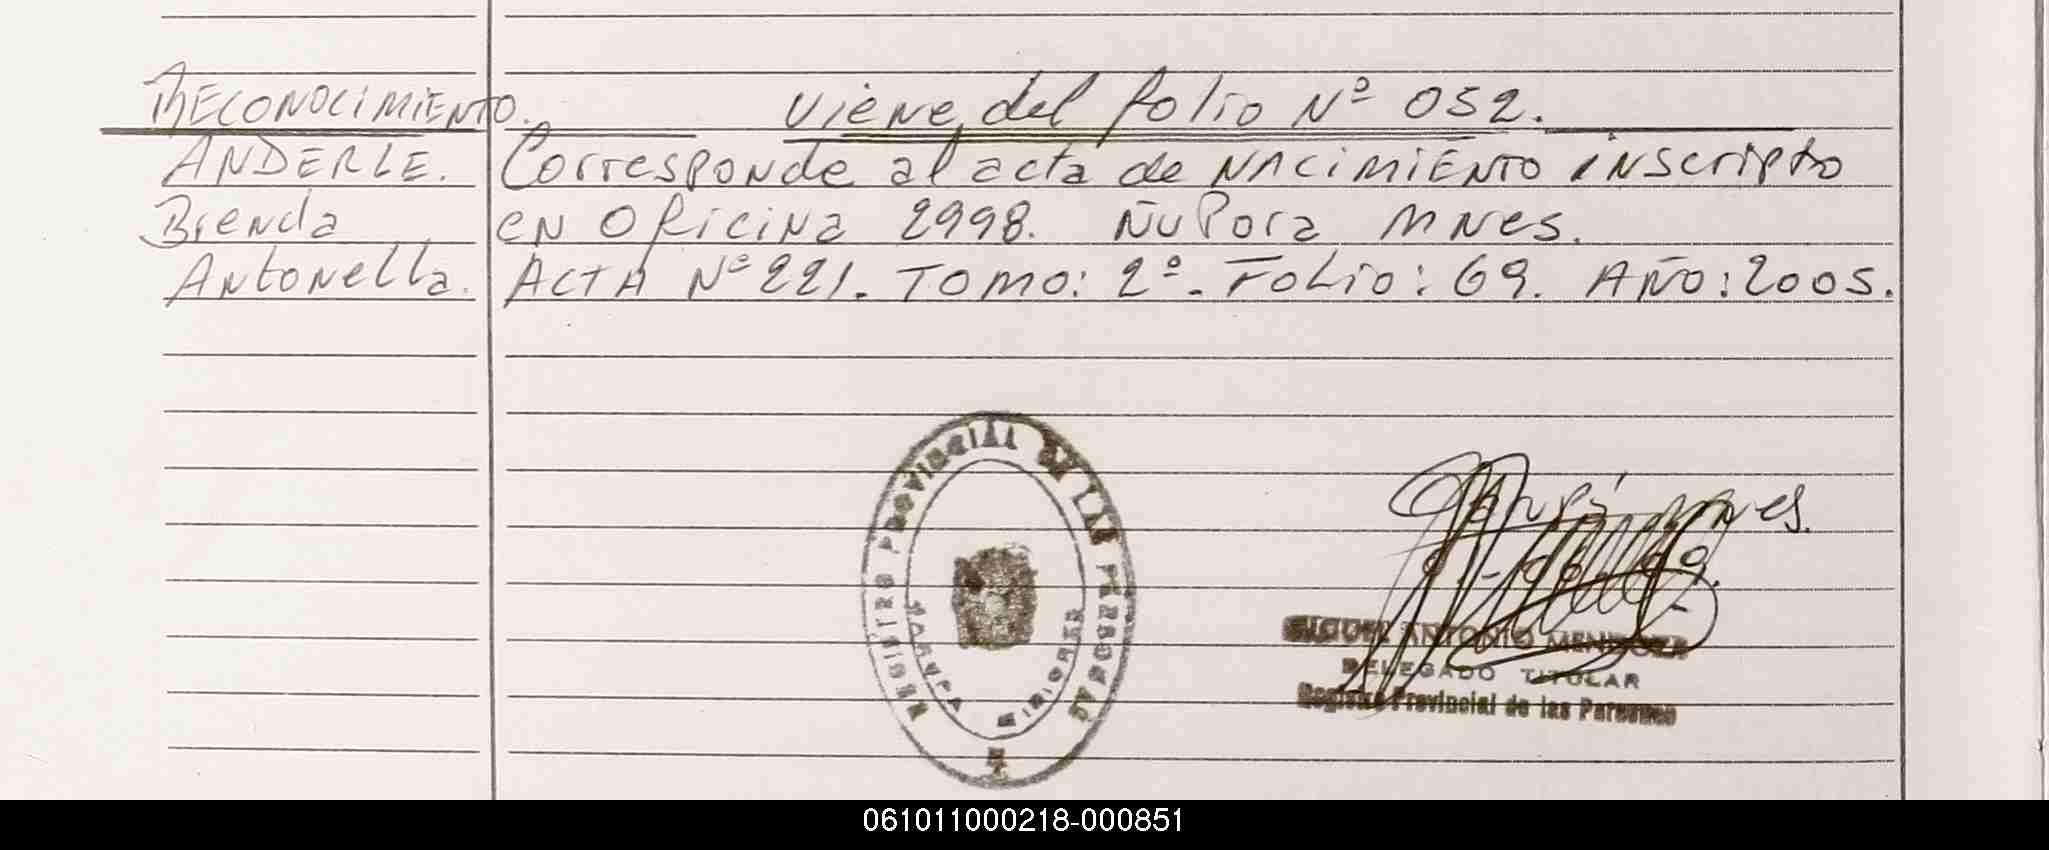 RECONOCIMIENTO.
ANDERLE.
Brenda
Antonella.
Viene del folio Nº 052.
Corresponde al acta de NACIMIENTO inscripto
en Oficina 2998. Ñu Pora MNes.
ACTA Nº 221. TOMO: 2º. FOLIO: 69. AÑO: 2005.
REGISTRO PROVINCIAL DE LAS PERSONAS
MIGUEL ANTONIO MENDOZA
DELEGADO TITULAR
Registro Provincial de las Personas
061011000218-000851